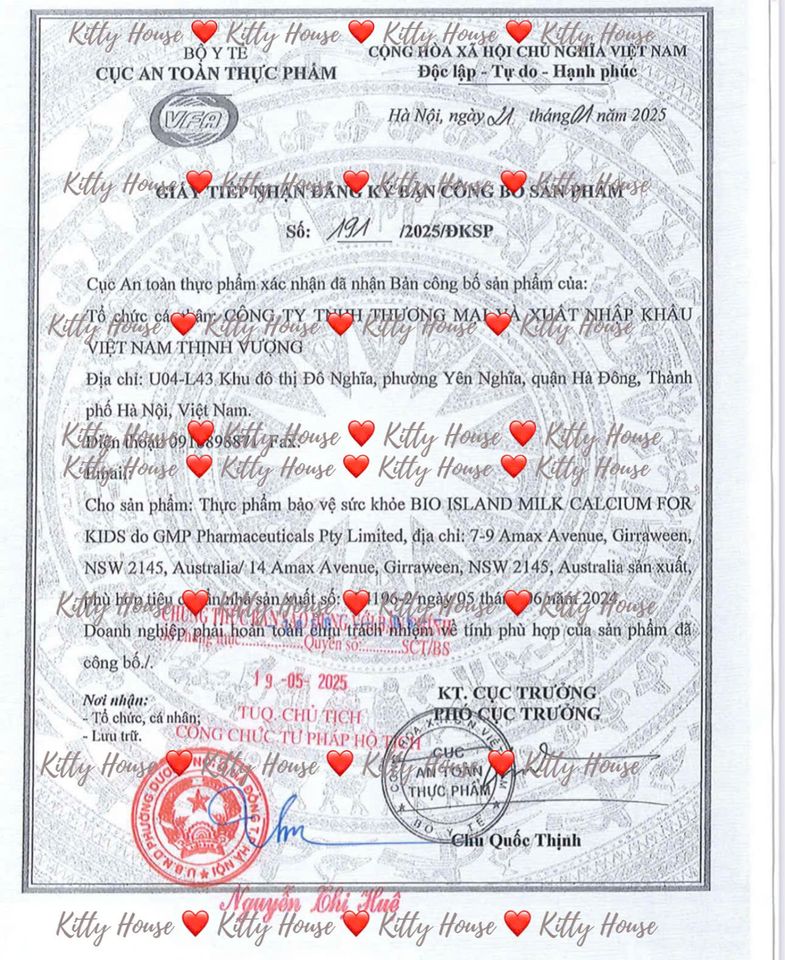 Kitty House ❤️ Kitty House ❤️ Kitty House ❤️ Kitty House
BỘ Y TẾ
CỤC AN TOÀN THỰC PHẨM
VFA
CỘNG HÒA XÃ HỘI CHỦ NGHĨA VIỆT NAM
Độc lập - Tự do - Hạnh phúc
Hà Nội, ngày 21 tháng 01 năm 2025
Kitty House ❤️ Kitty House ❤️ Kitty House ❤️ Kitty House
GIẤY TIẾP NHẬN ĐĂNG KÝ BẢN CÔNG BỐ SẢN PHẨM
Số: 191 /2025/ĐKSP
Cục An toàn thực phẩm xác nhận đã nhận Bản công bố sản phẩm của:
Tổ chức cá nhân: CÔNG TY TNHH THƯƠNG MẠI VÀ XUẤT NHẬP KHẨU
Kitty House ❤️ Kitty House ❤️ Kitty House ❤️ Kitty House
VIỆT NAM THỊNH VƯỢNG
Địa chỉ: U04-L43 Khu đô thị Đô Nghĩa, phường Yên Nghĩa, quận Hà Đông, Thành
phố Hà Nội, Việt Nam.
Kitty House ❤️ Kitty House ❤️ Kitty House ❤️ Kitty House
Điện thoại: Fax:
Kitty House ❤️ Kitty House ❤️ Kitty House ❤️ Kitty House
Email:
Cho sản phẩm: Thực phẩm bảo vệ sức khỏe BIO ISLAND MILK CALCIUM FOR
KIDS do GMP Pharmaceuticals Pty Limited, địa chỉ: 7-9 Amax Avenue, Girraween,
NSW 2145, Australia/ 14 Amax Avenue, Girraween, NSW 2145, Australia sản xuất,
phù hợp tiêu chuẩn nhà sản xuất số: ngày 05 tháng 06 năm 2024
Kitty House ❤️ Kitty House ❤️ Kitty House ❤️ Kitty House
CHỨNG THỰC BẢN SAO ĐÚNG VỚI BẢN CHÍNH
Doanh nghiệp phải hoàn toàn chịu trách nhiệm về tính phù hợp của sản phẩm đã
Số chứng thực..................Quyển số:............SCT/BS
công bố./.
19 -05- 2025
Nơi nhận:
- Tổ chức, cá nhân;
- Lưu trữ.
TUQ. CHỦ TỊCH
CÔNG CHỨC TƯ PHÁP HỘ TỊCH
KT. CỤC TRƯỞNG
PHÓ CỤC TRƯỞNG
CỤC
AN TOÀN
THỰC PHẨM
BỘ Y TẾ
Kitty House ❤️ Kitty House ❤️ Kitty House ❤️ Kitty House
Chu Quốc Thịnh
Nguyễn Thị Huệ
Kitty House ❤️ Kitty House ❤️ Kitty House ❤️ Kitty House